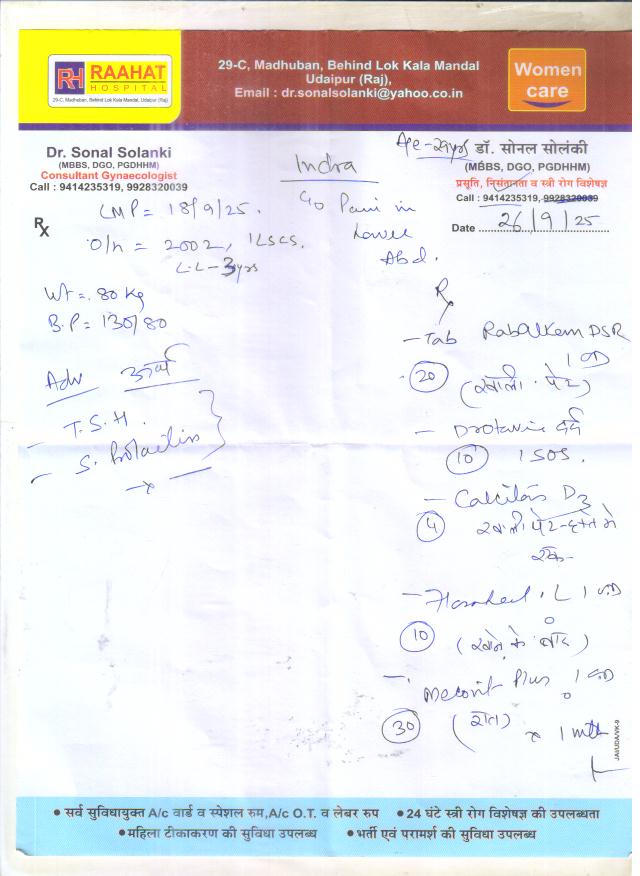 RH RAAHAT
HOSPITAL
29-C, Madhuban, Behind Lok Kala Mandal, Udaipur (Raj)
29-C, Madhuban, Behind Lok Kala Mandal
Udaipur (Raj),
Email : dr.sonalsolanki@yahoo.co.in
Women
care
Dr. Sonal Solanki
(MBBS, DGO, PGDHHM)
Consultant Gynaecologist
Call : 9414235319, 9928320039
Indra
Age - 29yrs
डॉ. सोनल सोलंकी
(MBBS, DGO, PGDHHM)
प्रसूति, निसंतानता व स्त्री रोग विशेषज्ञ
Call : 9414235319, 9928320039
Date 26/9/25
Rx
LMP = 18/9/25.
O/h = 2002, 1LSCS.
L.L - 3yrs
c/o Pain in
Lower
Abd.
Wt = 80 kg
B.P = 130/80
Adv
- T.S.H.
- S. Prolactin
Rx
- Tab RabAlkem DSR
1 OD
20 (खाली पेट)
- Drotavin दर्द
10 1 SOS.
- D3
4 खाली पेट - हफ्ते में
एक
L 1 OD
10 (खाने के बाद)
- Mecovit Plus 1 OD
30 (रात) x 1 mth
JAI/UDA/VK-9
• सर्व सुविधायुक्त A/c वार्ड व स्पेशल रुम,A/c O.T. व लेबर रुप • 24 घंटे स्त्री रोग विशेषज्ञ की उपलब्धता
• महिला टीकाकरण की सुविधा उपलब्ध • भर्ती एवं परामर्श की सुविधा उपलब्ध